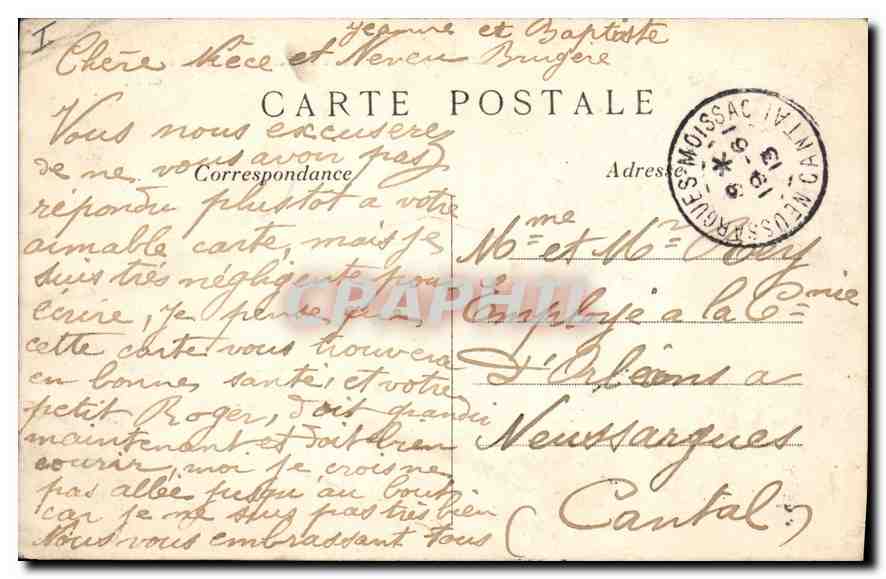 I
Jeanne et Baptiste
Chère Nièce et Neveu Brugère
CARTE POSTALE
Correspondance
Adresse
Vous nous excuserez
de ne vous avoir pas
répondu plustot a votre
aimable carte, mais je
suis très négligente pour
écrire, je pense que
cette carte vous trouvera
en bonne santé, et votre
petit Roger, doit grandir
maintenant et doit bien
courir, moi je crois ne
pas allée jusqu'au bout
car je ne suis pas très bien
Nous vous embrassant tous
Mme et Mr Rey
Employé a la Cnie
d'Orléans a
Neussargues
(Cantal)
NEUSSARGUES-MOISSAC CANTAL
6 * 9-1
13
CPAPHIL